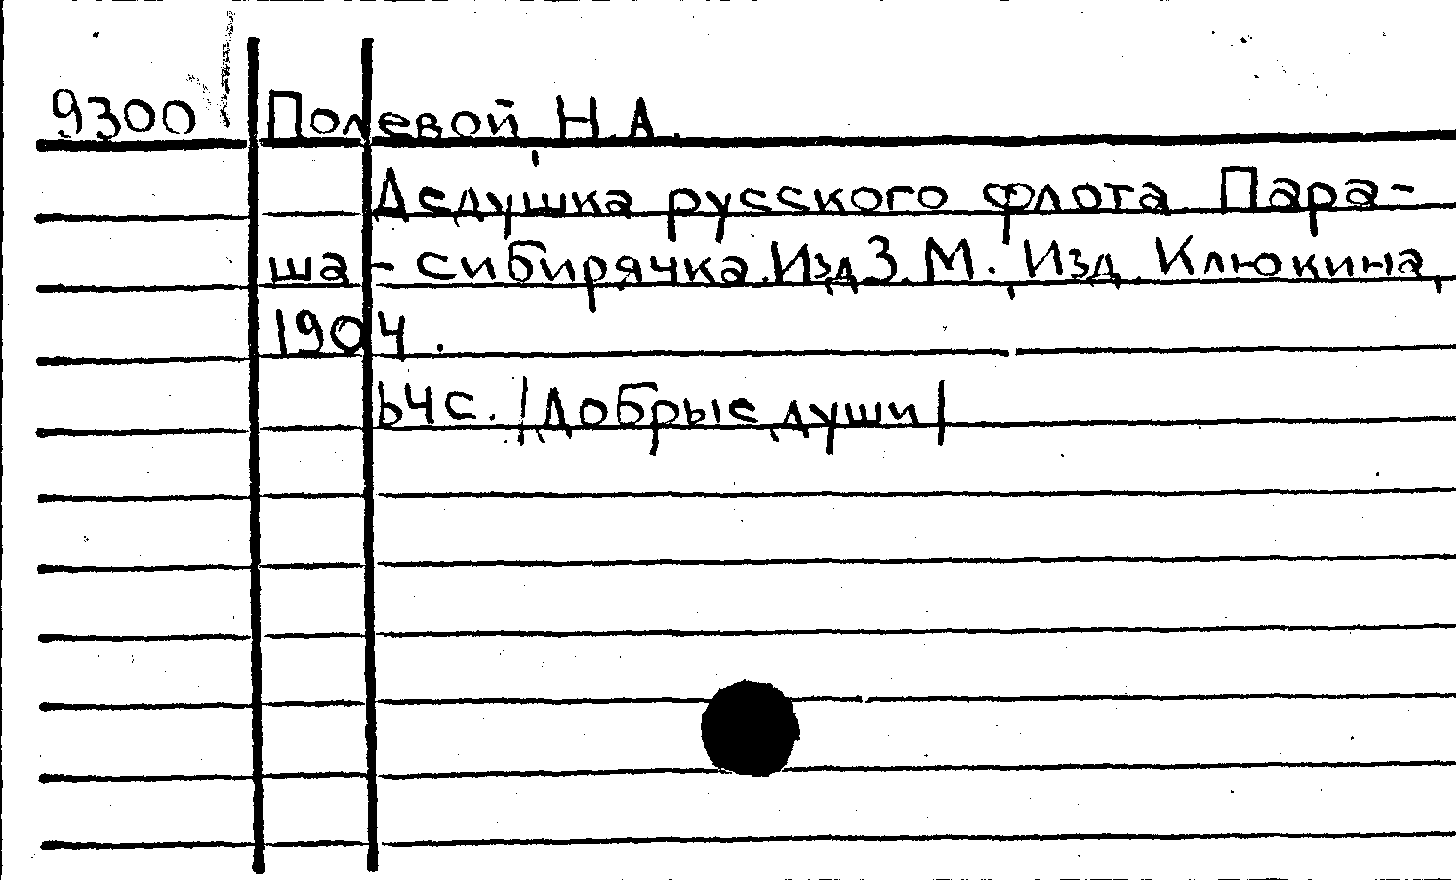 9300 Полевой Н.А.
Дедушка русского флота. Пара-
ша - сибирячка. Изд 3. М. Изд. Клюкина,
1904.
64 с. |Добрые души|